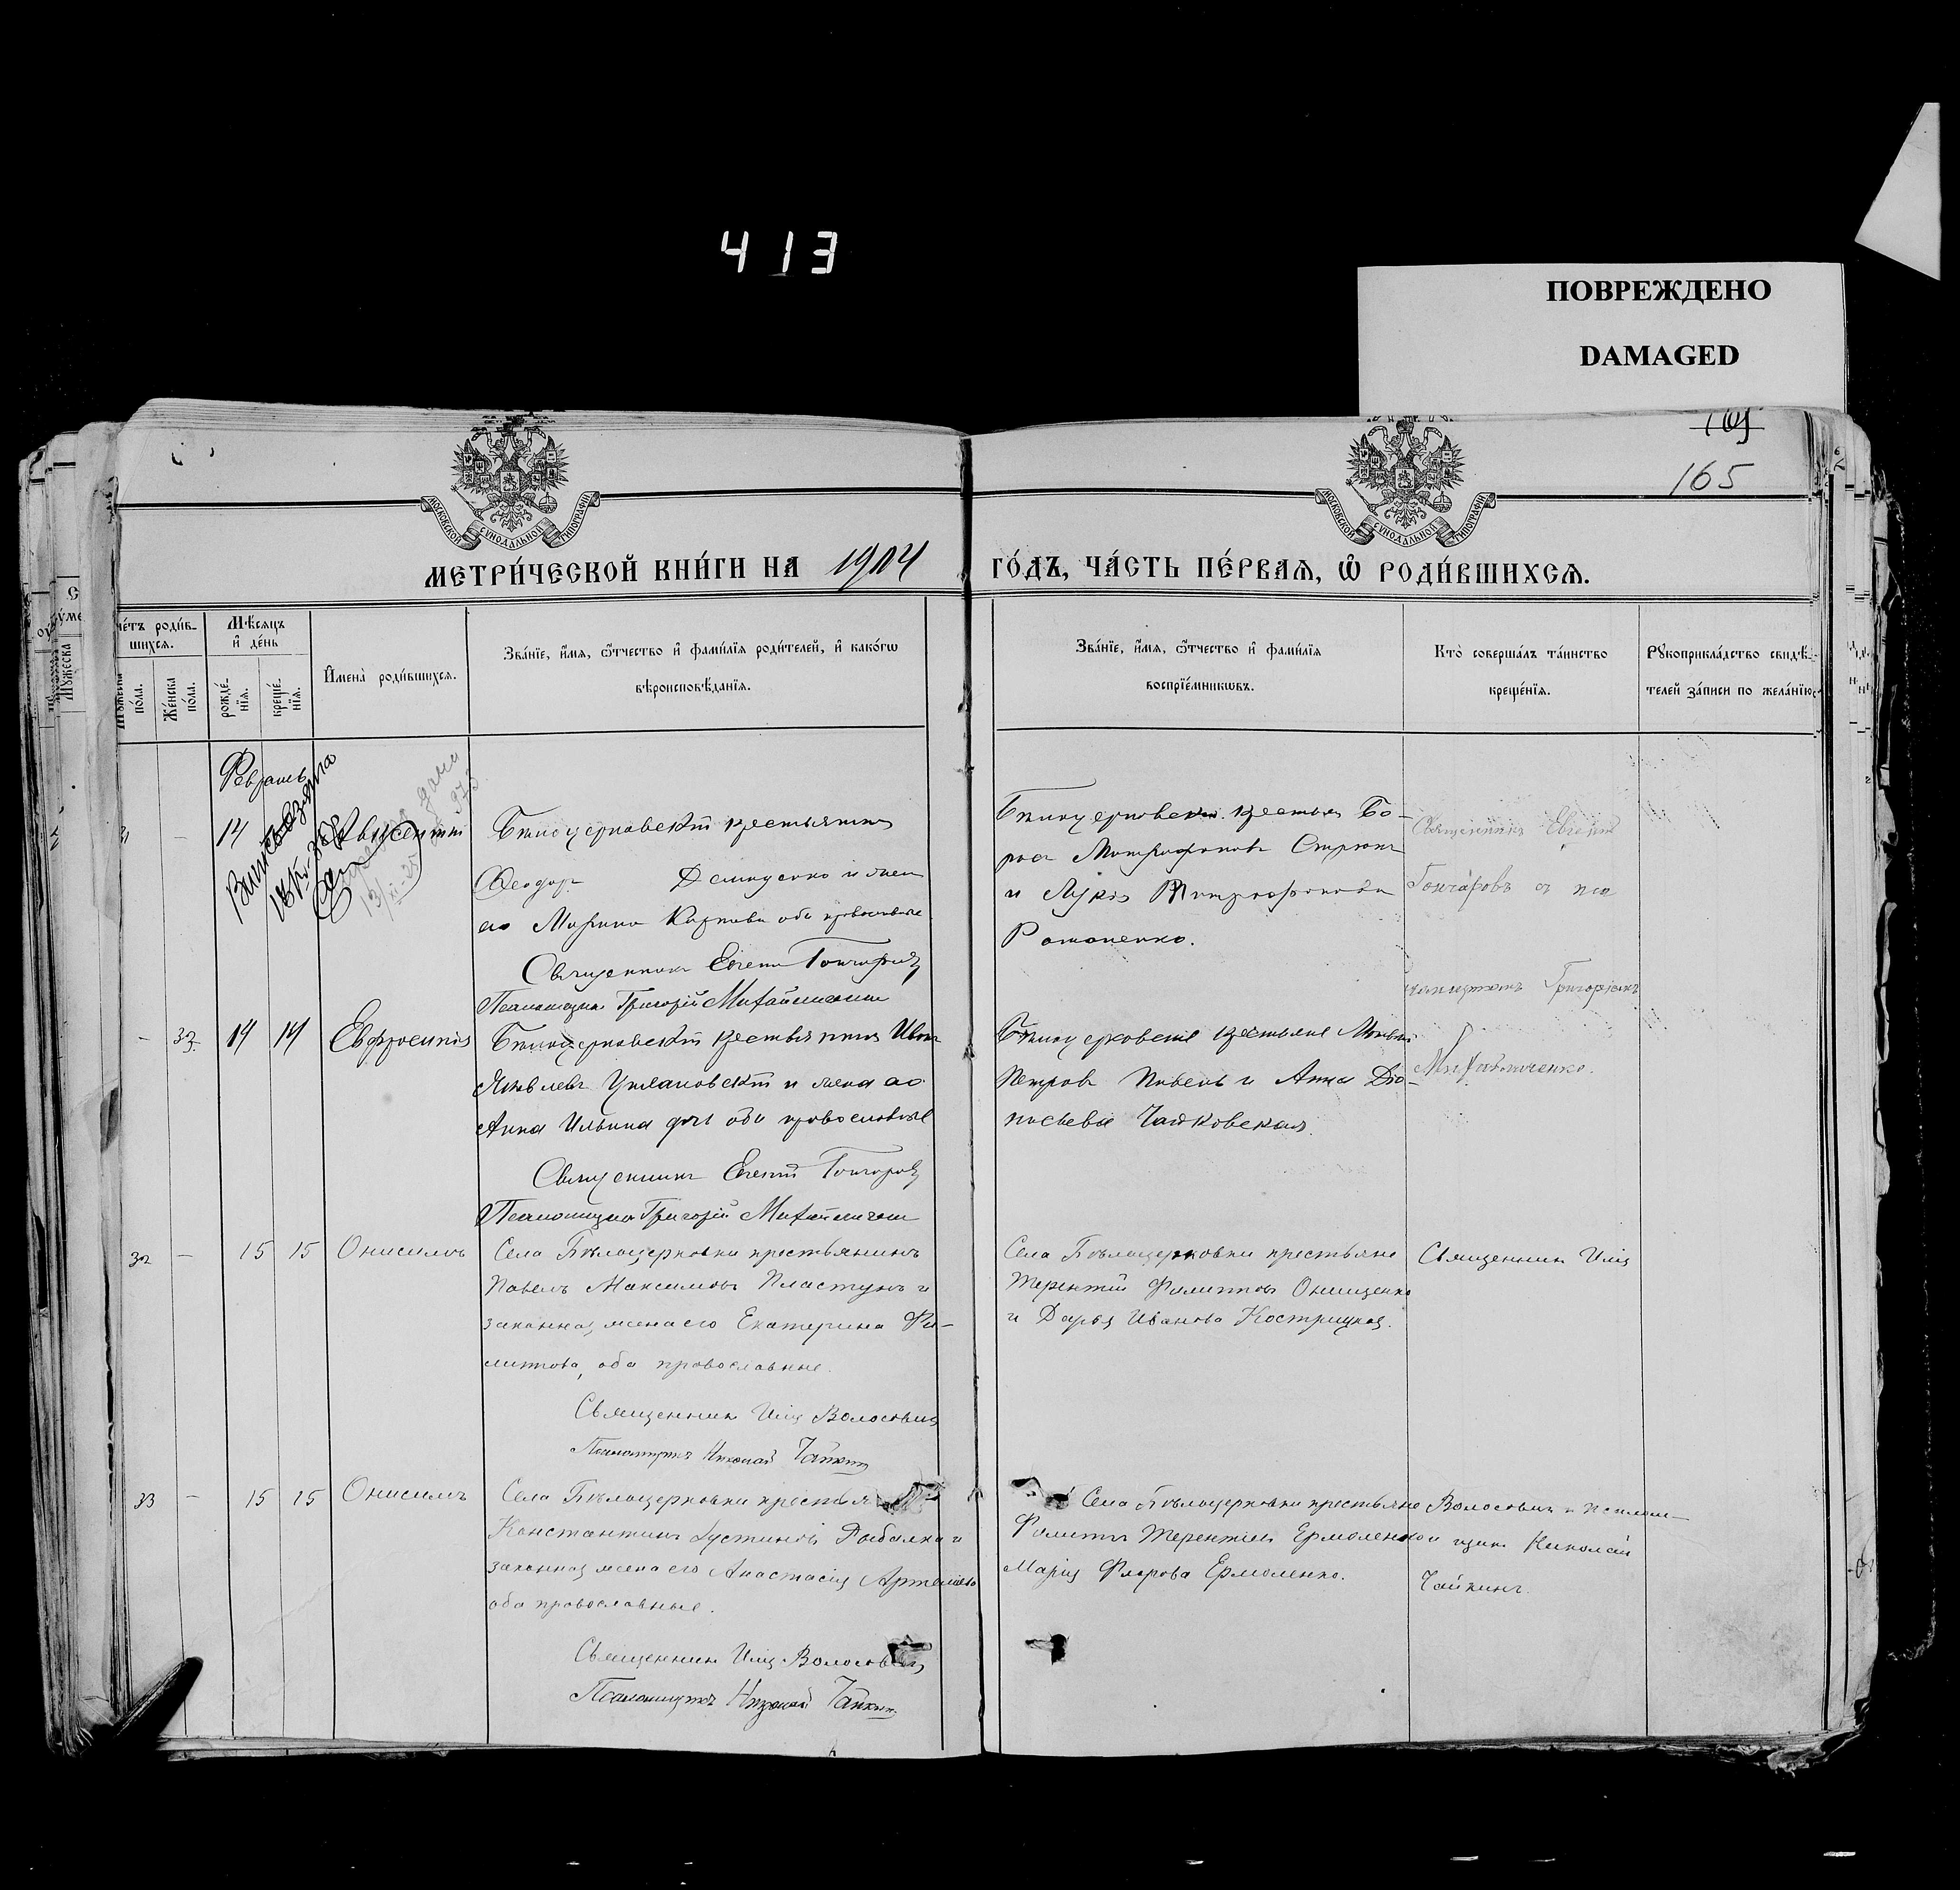 413
ПОВРЕЖДЕНО
DAMAGED
165
МОСКОВСКОЙ СУНОДАЛЬНОЙ ТИПОГРАФІИ
МОСКОВСКОЙ СУНОДАЛЬНОЙ ТИПОГРАФІИ
МЕТРИ́ЧЕСКОЙ КНИ́ГИ НА 1904
ГО́ДЪ, ЧА́СТЬ ПЕ́РВАЯ, Ѽ РОДИ́ВШИХСЯ.
че́тъ роди́в-
шихся.
Мѣ́сяцъ
и҆ де́нь
Мꙋ́жеска по́ла.
Же́нска по́ла.
рожде́-
нїя.
креще́-
нїя.
И҆мена̀ роди́вшихся.
Зва́нїе, и҆́мя, ѻ҆́тчество и҆ фами́лїя роди́телей, и҆ како́гѡ
вѣроисповѣ́данїя.
Зва́нїе, и҆́мя, ѻ҆́тчество и҆ фами́лїя
воспрїе́мникѡвъ.
Кто̀ соверша́лъ та́инство
креще́нїя.
Рꙋкоприкла́дство свидѣ́-
телей за́писи по жела́нїю.
Февраль
14
Авксентій
Бѣлоцерковскій крестьянинъ
Ѳеодоръ Демиденко и жена
его Марина Карпова оба православные
Священникъ Евгеній Гончаровъ
Псаломщикъ Григорій Михайличенко
Бѣлоцерковскіе крестьяне Бо-
рисъ Митрофановъ Стрюкъ
и Лукія Митрофанова
Романенко.
Священникъ Евгеній
Гончаровъ съ пса
ломщикомъ Григоріемъ
Михайличенко.
- 32 14 14 Евфросинія
Бѣлоцерковскій крестьянинъ Иванъ
Яковлевъ и жена его
Анна Ильина оба православные
Священникъ Евгеній Гончаровъ
Псаломщикъ Григорій Михайличенко
Бѣлоцерковскіе крестьяне
Петровъ и Анна Дio-
нисьева Чайковская.
32 - 15 15 Онисимъ
Села Бѣлоцерковки крестьянинъ
Павелъ Максимовъ Пластунъ и
законная жена его Екатерина Фи-
липпова, оба православные.
Священникъ Илія Волосовичъ
Псаломщикъ Николай Чайкинъ
Села Бѣлоцерковки крестьяне
Терентій Филипповъ Онищенко
и Дарья Иванова Кострицкая.
Священникъ Илія
33 - 15 15 Онисимъ
Села Бѣлоцерковки крестья
Константинъ Іустиновъ Рыбалка и
законная жена его Анастасія Артеміева
оба православные.
Священникъ Илія Волосовичъ
Псаломщикъ Николай Чайкинъ
Села Бѣлоцерковки крестьяне
Филиппъ Терентіевъ Ермоленко и
Марія Флорова Ермоленко.
Волосовичъ и псалом-
щикъ Николай
Чайкинъ.